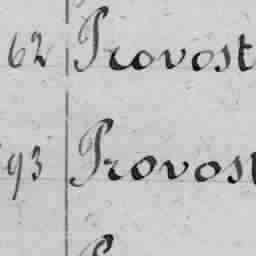 62 Provost
93 Provost